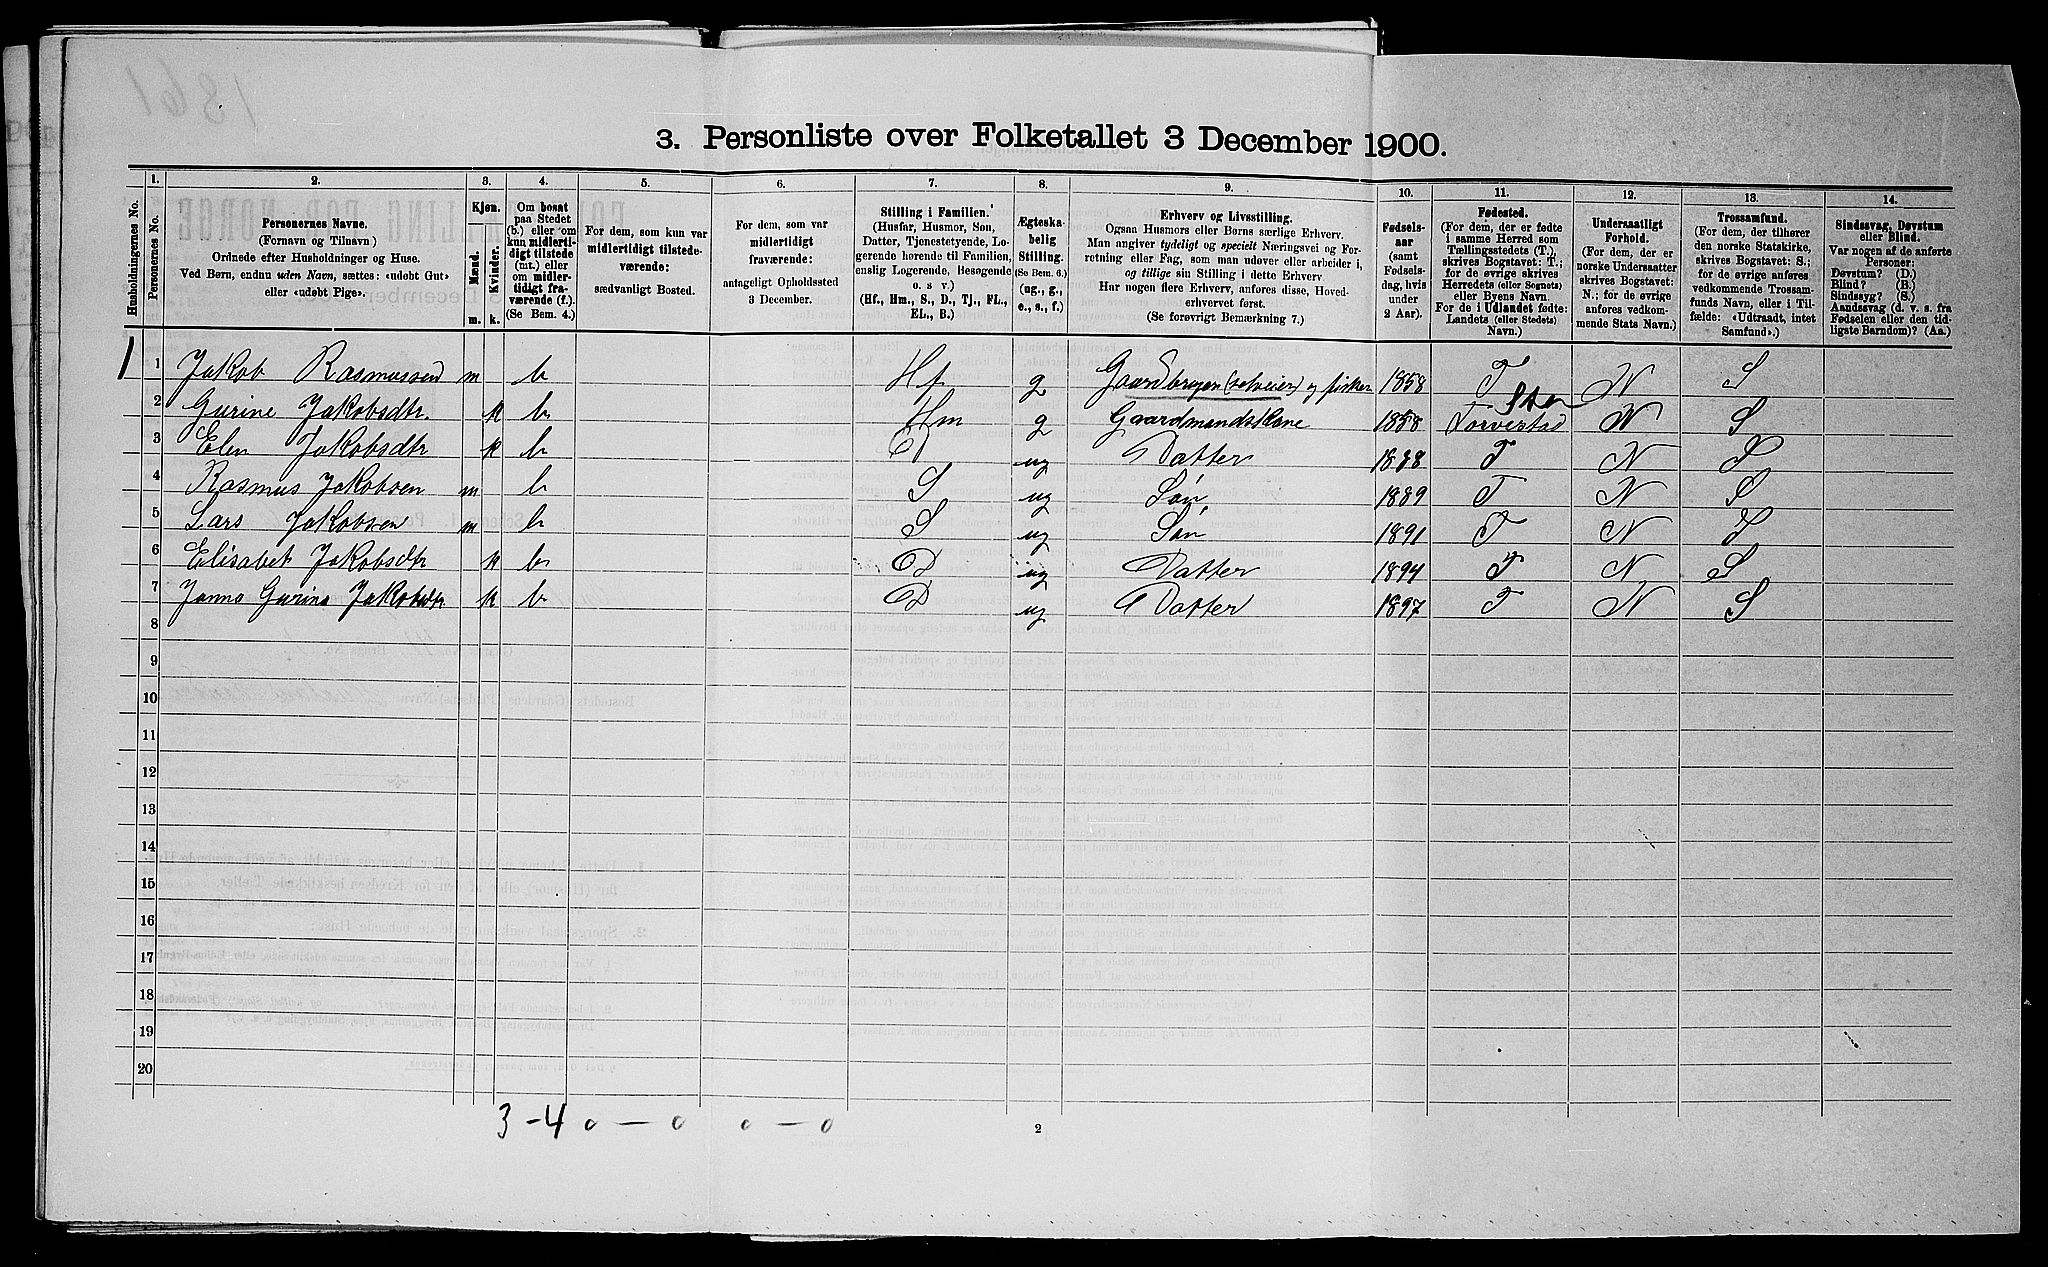 1861
3. Personliste over Folketallet 3 December 1900.
Husholdningernes No.
1.
Personernes No.
2.
Personernes Navne.
(Fornavn og Tilnavn)
Ordnede efter Husholdninger og Huse.
Ved Børn, endnu uden Navn, sættes: «udøbt Gut»
eller «udøbt Pige».
3.
Kjøn.
Mænd.
Kvinder.
m.
k.
4.
Om bosat
paa Stedet
(b.) eller om
kun midlerti-
digt tilstede
(mt.) eller
om midler-
tidigt fra-
værende (f.).
(Se Bem. 4.)
5.
For dem, som kun var
midlertidigt tilstede-
værende:
sædvanligt Bosted.
6.
For dem, som var
midlertidigt
fraværende:
antageligt Opholdssted
3 December.
7.
Stilling i Familien.
(Husfar, Husmor, Søn,
Datter, Tjenestetyende, Lo-
gerende hørende til Familien,
enslig Logerende, Besøgende
o. s. v.)
(Hf., Hm., S., D., Tj., FL.,
EL., B.)
8.
Ægteska-
belig
Stilling.
(Se Bem. 6.)
(ug., g.,
e., s., f.)
9.
Erhverv og Livsstilling.
Ogsaa Husmors eller Børns særlige Erhverv.
Man angiver tydeligt og specielt Næringsvei og For-
retning eller Fag, som man udøver eller arbeider i,
og tillige sin Stilling i dette Erhverv.
Har nogen flere Erhverv, anføres disse, Hoved-
erhvervet først.
(Se forøvrigt Bemærkning 7.)
10.
Fødsels-
aar
(samt
Fødsels-
dag, hvis
under
2 Aar).
11.
Fødested.
(For dem, der er fødte
i samme Herred som
Tællingsstedets (T.),
skrives Bogstavet: T.;
for de øvrige skrives
Herredets (eller Sognets)
eller Byens Navn.
For de i Udlandet fødte:
Landets (eller Stedets)
Navn.)
12.
Undersaatligt
Forhold.
(For dem, der er
norske Undersaatter
skrives Bogstavet:
N.; for de øvrige
anføres vedkom-
mende Stats Navn.)
13.
Trossamfund.
(For dem, der tilhører
den norske Statskirke,
skrives Bogstavet: S.;
for de øvrige anføres
vedkommende Trossam-
funds Navn, eller i Til-
fælde: «Udtraadt, intet
Samfund».)
14.
Sindssvag, Døvstum
eller Blind.
Var nogen af de anførte
Personer:
Døvstum? (D.)
Blind? (B.)
Sindssyg? (S.)
Aandssvag (d. v. s. fra
Fødselen eller den tid-
ligste Barndom)? (Aa.)
1 1 Jakob Rasmussen m b Hf g Gaardbruger (selveier) og fisker 1858 T N S
2 Gurine Jakobsdtr k b Hm g Gaardmandskone 1858 Torvestad N S
3 Elen Jakobsdtr k b D ug Datter 1888 T N S
4 Rasmus Jakobsen m b S ug Søn 1889 T N S
5 Lars Jakobsen m b S ug Søn 1891 T N S
6 Elisabet Jakobsdtr k b D ug Datter 1894 T N S
7 Janna Gurina Jakobsdtr k b D ug Datter 1897 T N S
8
9
10
11
12
13
14
15
16
17
18
19
20
3-4 0-0 0-0
2